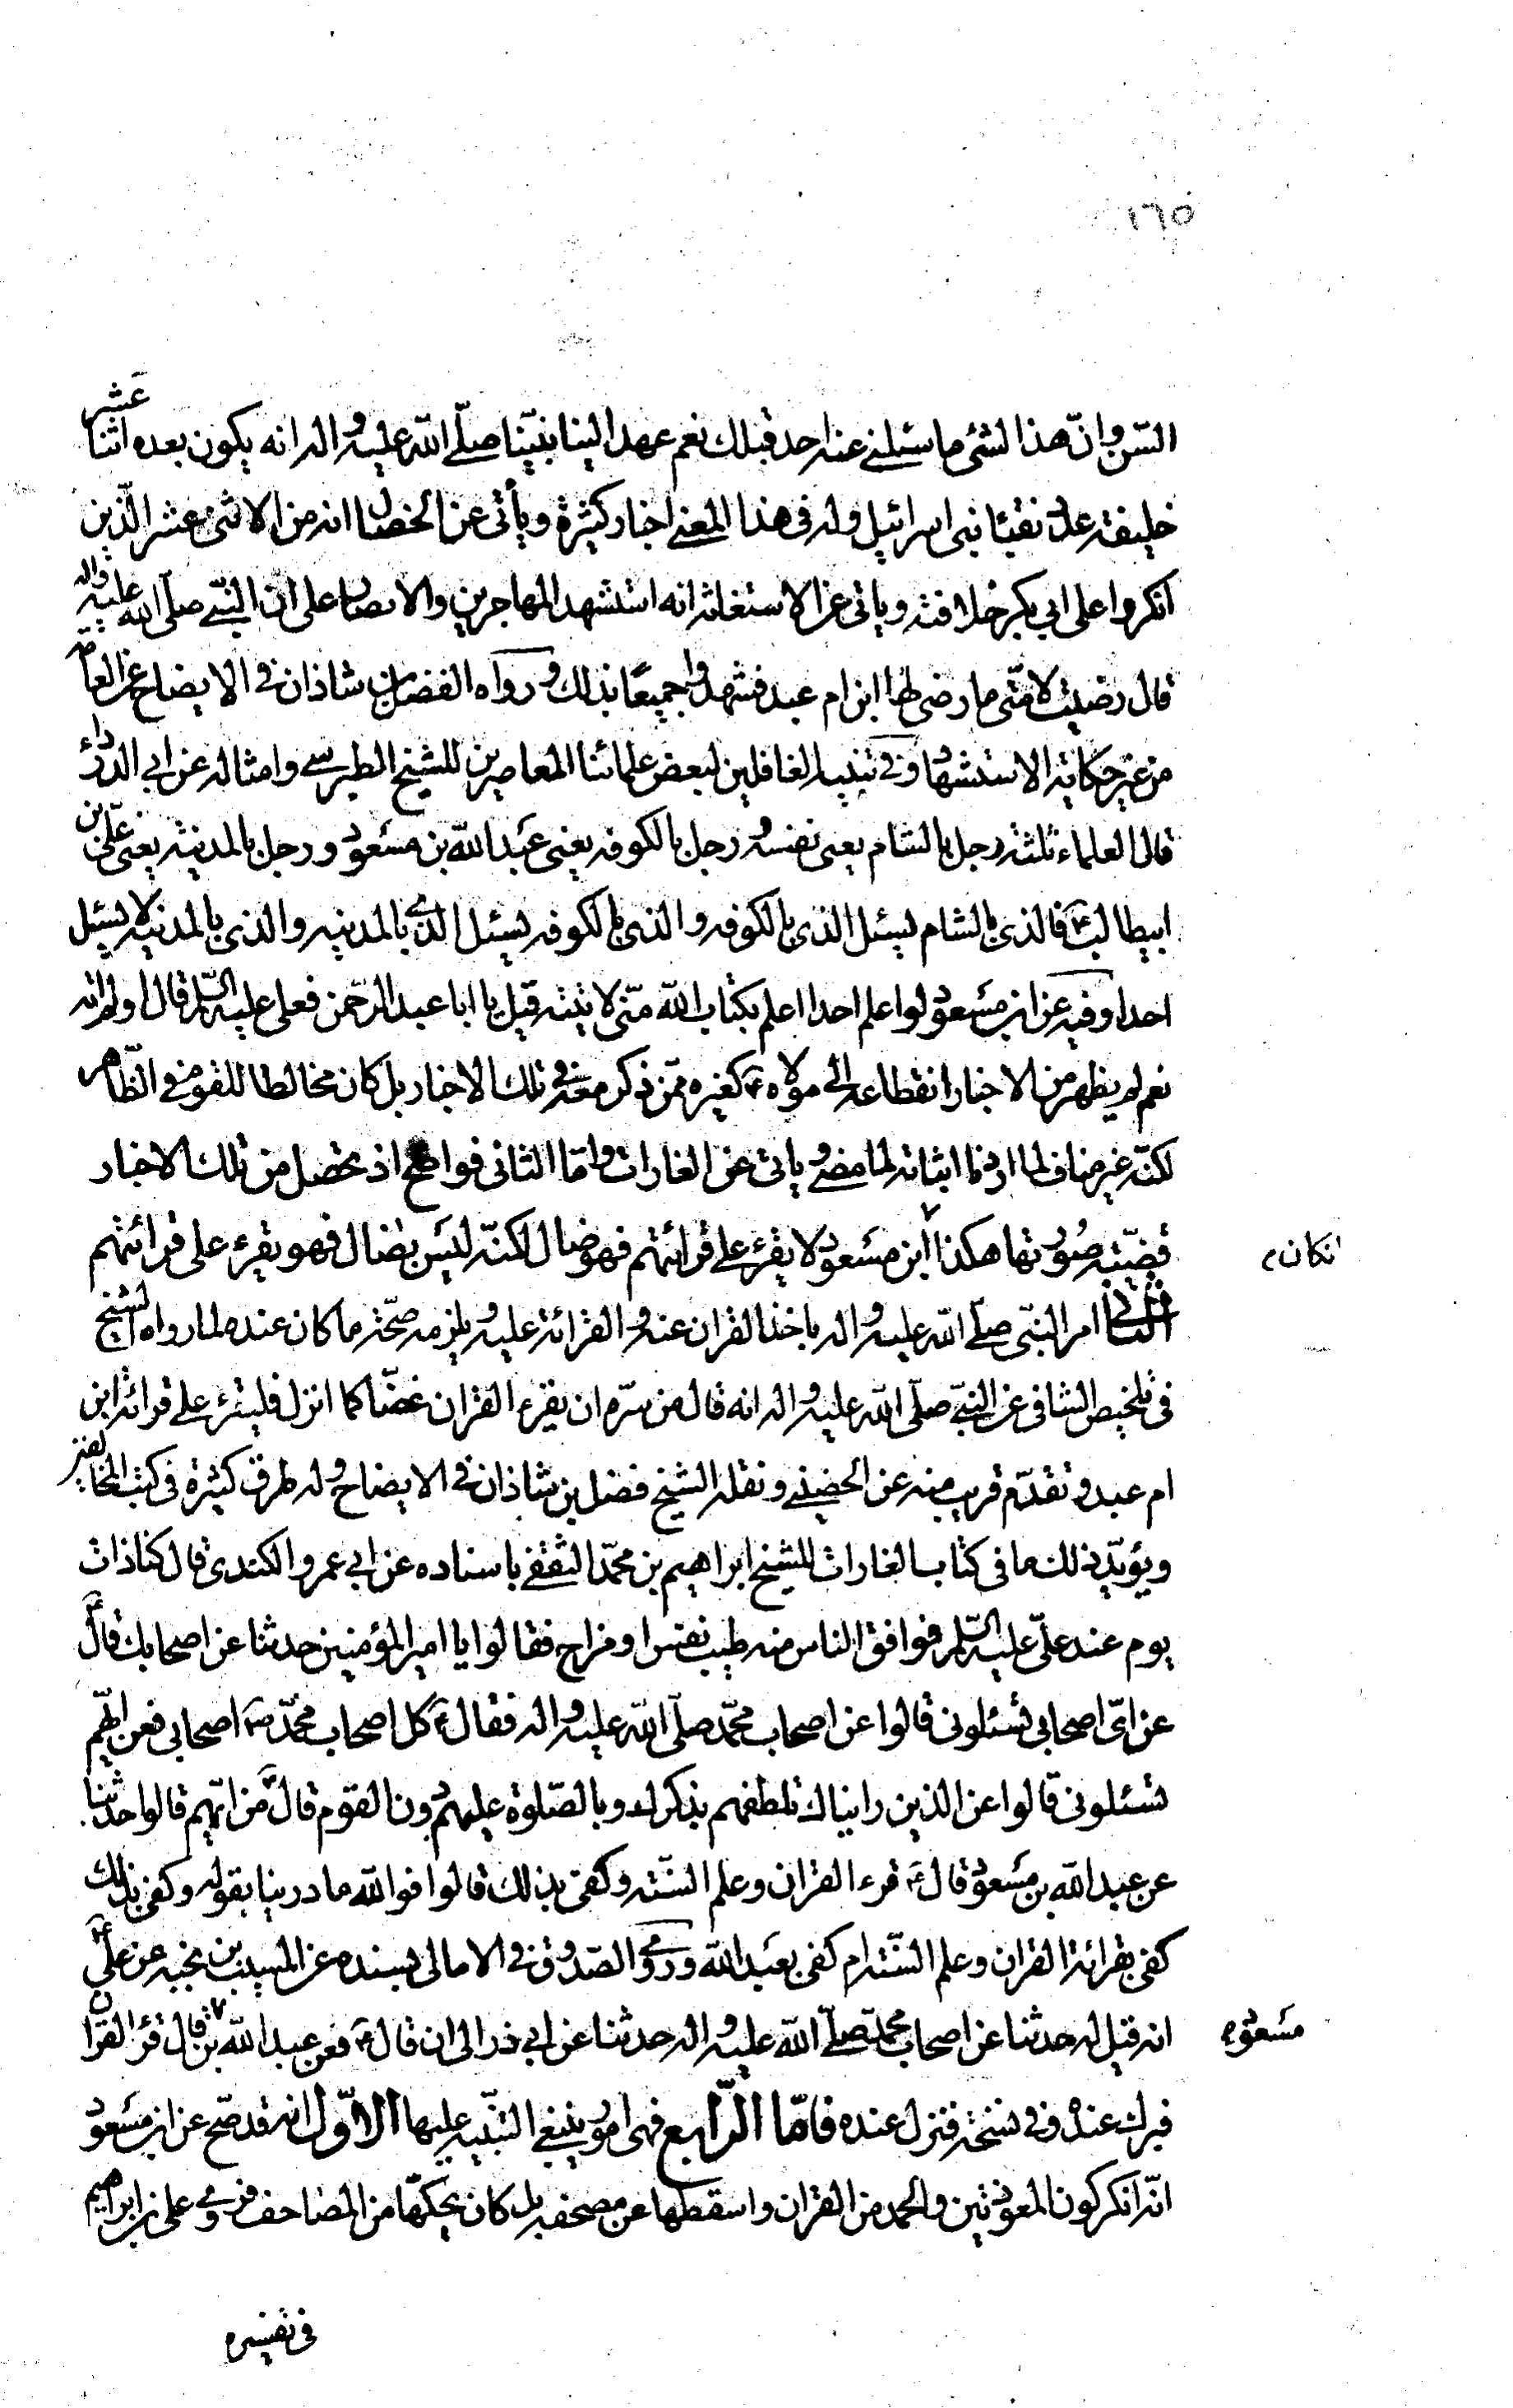 ١٦٥
السن وان هذا لشئ ما سئلنى عنه احد قبلك نعم عهد الينا نبينا صلّى الله عليه و اله انه يكون بعده اثنا عشر
خليفة عدد نقباء بنى اسرائيل وله فى هذا المعنى اخبار كثيرة ويأتى عن الخصال انه من الاثنى عشر الّذين
انكروا على ابى بكر خلافته وياتى عن الاستغاثة انه استشهد المهاجرين والانصار على ان النبى صلّى الله عليه واله
قال رضيت لامّتى ما رضى لها ابن ام عبد فشهدوا جميعًا بذلك ورواه الفضل بن شاذان فى الايضاح عن العامّة
من غير حكاية الاستشهاد وفى تنبيه الغافلين لبعض علمائنا المعاصرين للشيخ الطبرسى وامثاله عن ابى الدرداء
قال العلماء ثلثة رجل بالشام يعنى نفسه ورجل بالكوفه يعنى عبد الله بن مسعود ورجل بالمدينة يعنى علىّ بن
ابيطالب ع فالذى بالشام يسئل الذى بالكوفه والذى بالكوفه يسئل الذى بالمدينه والذى بالمدينه لا يسئل
احدا وفيه عن ابن مسعود لو اعلم احدا اعلم بكتاب الله منّى لاتيته قيل يا ابا عبد الرّحمن فعلى عليه السّلم قال اولم اته
نعم لم يظهر من الاخبار انقطاعه الى مولاه ع كغيره ممّن ذكر معه فى تلك الاخبار بل كان مخالطا للقوم فى الظّاهر
لكنّه غير مناف لما اردنا اثباته لما مضى و ياتى عن الغارات وامّا الثانى فواضح اذ تحصل من تلك الاخبار
قضيّة صورتها هكذا ابن مسعود لا يقرء على قرائتهم فهو ضال لكنّه ليس بضال فهو يقرء على قرائتهم
انكان م
الثالث امر النبّى صلّى الله عليه و اله باخذ القران عنه و القرائة عليه و يلزمه صحّة ما كان عنده لما رواه الشيخ
فى تلخيص الشافى عن النبىّ صلّى الله عليه و اله انه قال من سرّه ان يقرء القران غضّا كما انزل فليقرء على قرائة ابن
ام عبد و تقدّم قريب منه عن الحضينى و نقله الشيخ فضل بن شاذان فى الايضاح وله طرق كثيرة فى كتب المخالفين
ويؤيّد ذلك ما فى كتاب الغارات للشيخ ابراهيم بن محمّد الثقفى باسناده عن ابى عمرو الكندى قال كنا ذات
يوم عند علىّ عليه السّلم فوافق الناس منه طيب نفس و مزاح فقالوا يا امير المؤمنين حدثنا عن اصحابك قال ع
عن اىّ اصحابى تسئلونى قالوا عن اصحاب محمّد صلّى الله عليه و اله فقال ع كل اصحاب محمّد ص اصحابى فعن ايّهم
تسئلونى قالوا عن الذين رايناك تلطفهم بذكرك و بالصّلوة عليهم دون القوم قال ع من ايّهم قالوا حدثنا
عن عبد الله بن مسعود قال ع قرء القران وعلم السّنّة وكفى بذلك قالوا فوالله ما درينا بقوله وكفى بذلك
كفى بقرائة القران وعلم السّنّة ام كفى بعبد الله وروى الصّدوق فى الامالى بسنده عن المسيب بن نجبه عن علىّ ع
انه قيل له حدثنا عن اصحاب محمّد صلّى الله عليه و اله حدثنا عن ابى ذر الى ان قال ع فعن عبد الله بن قال قرء القران
مسعود م
فبرك عنده وفى نسخة فنزل عنده فامّا الرّابع فهى امور ينبغى التنبيه عليها الاوّل انه قد صحّ عن ابن مسعود
انّه انكر كون المعوذتين والحمد من القران واسقطها عن مصحفه بل كان يحكّها من المصاحف فروى على بن ابراهيم
فى تفسيره